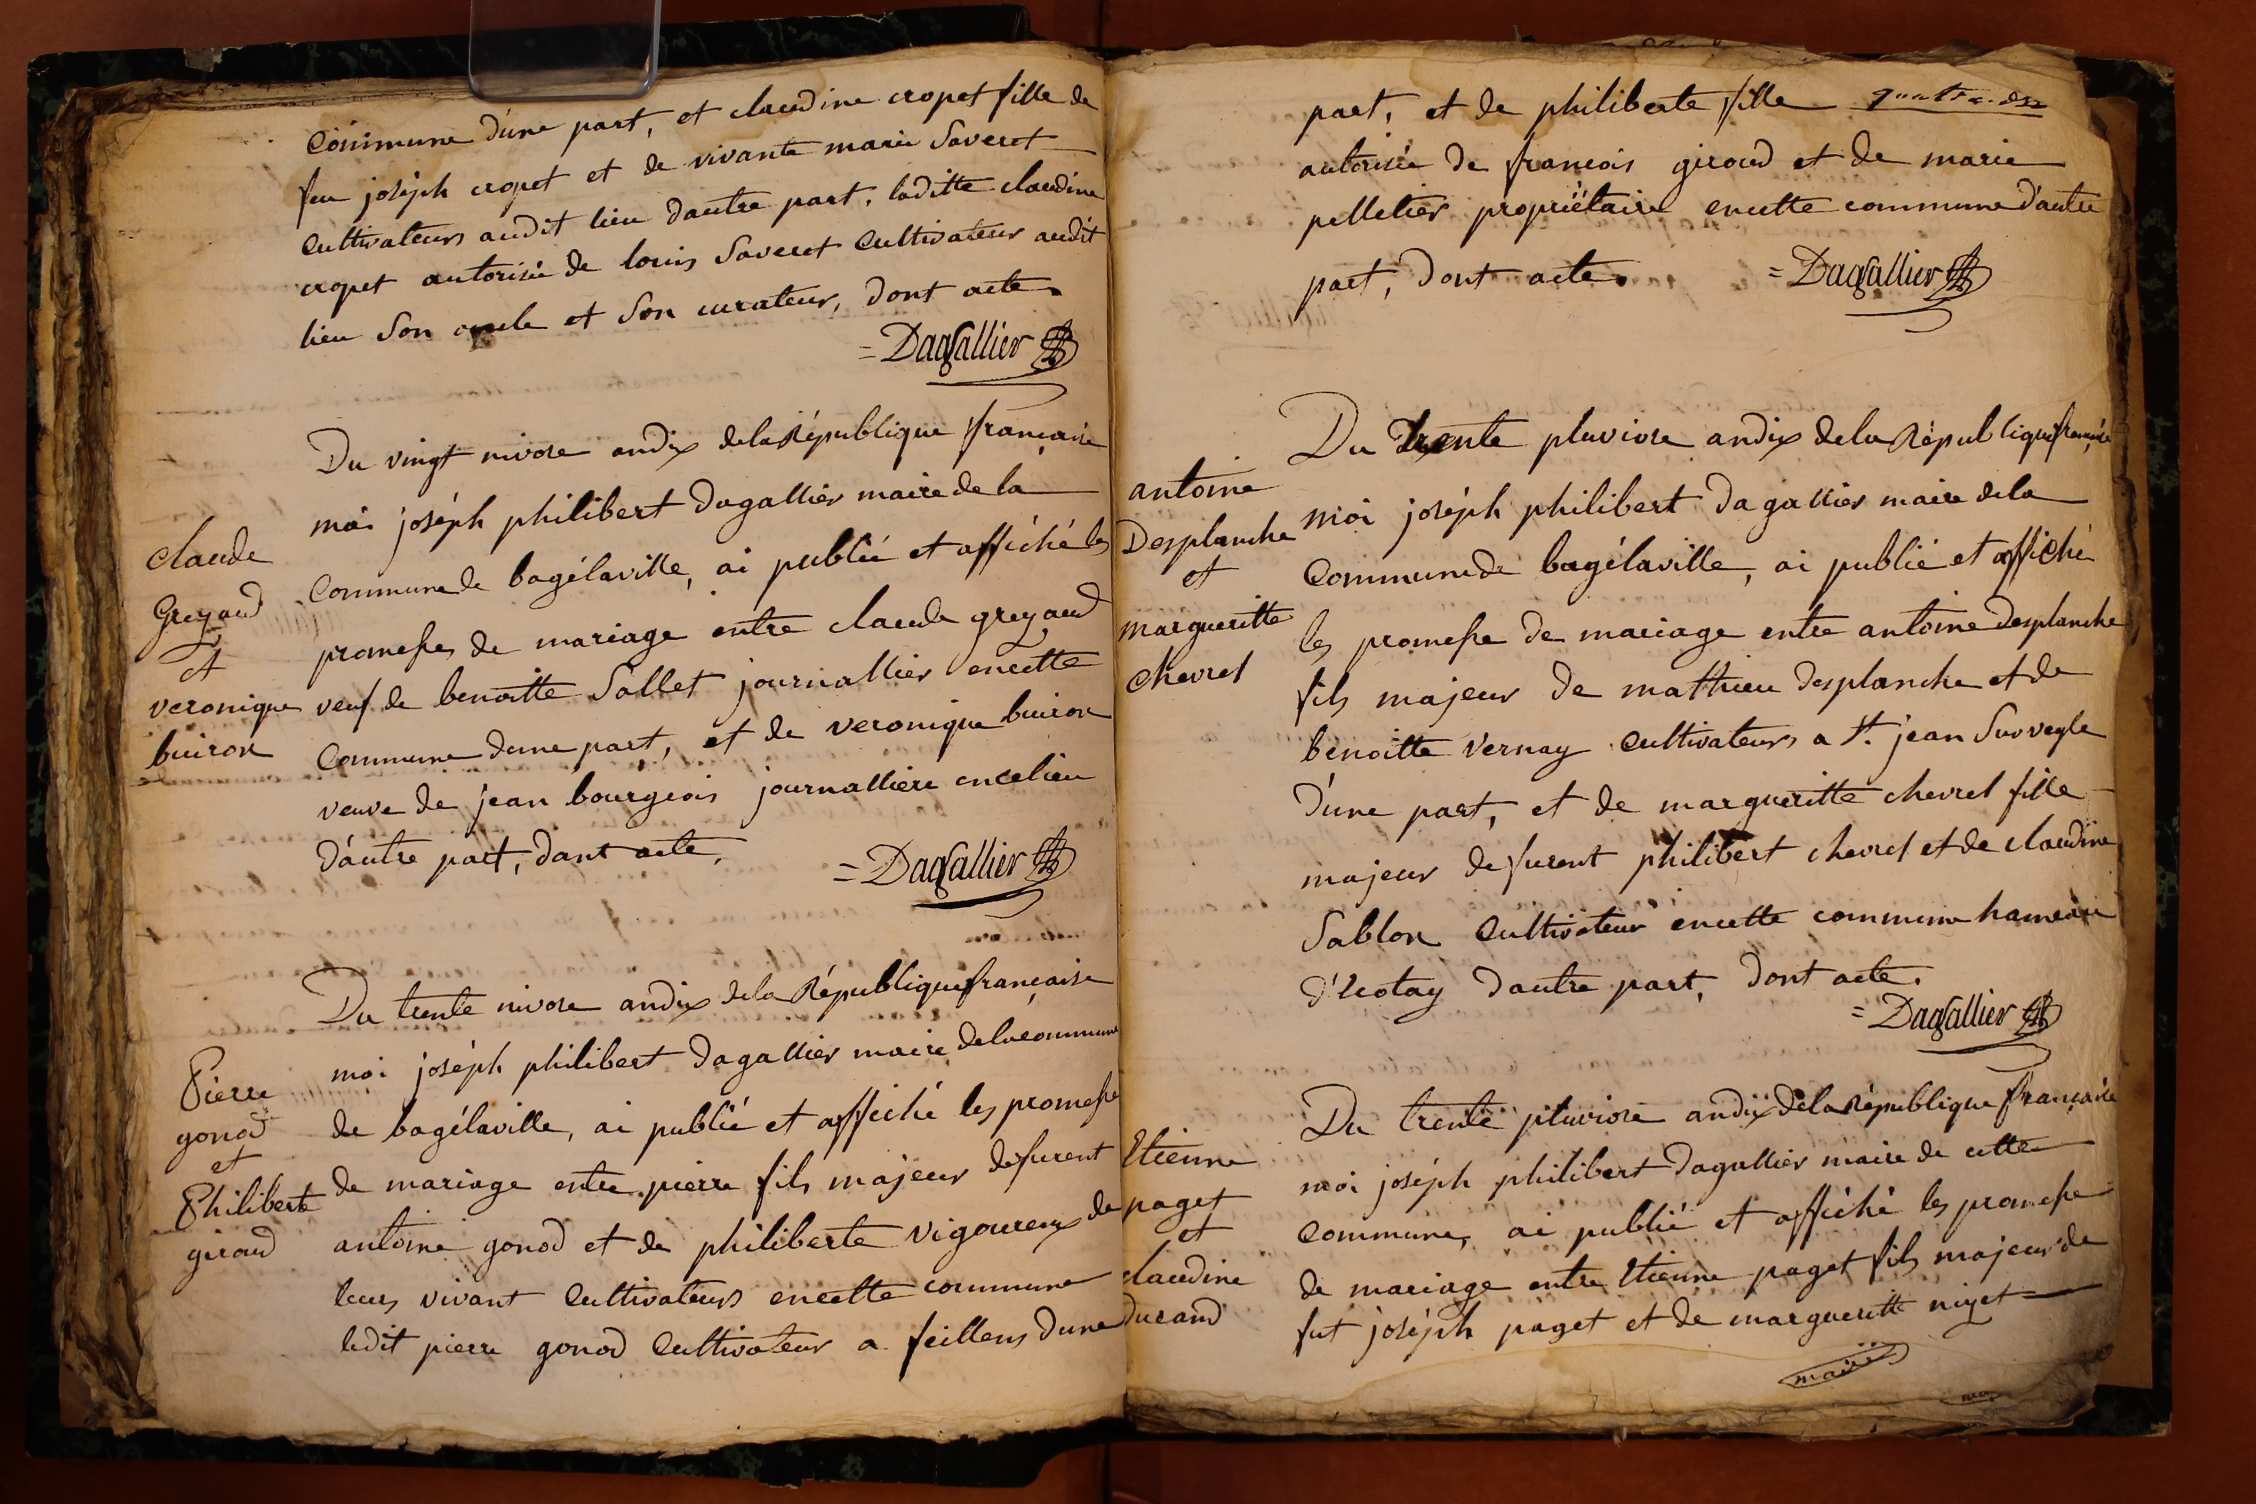 commune d'une part, et claudine cropet fille de
feu joséph cropet et de vivante marie Saveret
cultivateurs audit lieu dautre part, laditte claudine
cropet autorisée de louis Saveret cultivateur audit
lieu Son oncle et Son curateur, dont acte.
= Dagallier
Du vingt nivose andix dela République française
moi joséph philibert Dagallier maire de la
Commune de bagélaville, ai publié et affiché les
promesses de mariage entre claude greyaud
veuf de benoitte Sallet journallier encette
Commune dune part, et de veronique buiron
veuve de jean bourgeois journalliere encelieu
d'autre part, dont acte,
= Dagallier
claude
Greyaud
et
veronique
buiron
Du trente nivose andix dela République française
moi joséph philibert Dagallier maire delacommune
de bagélaville, ai publié et affiché les promesse
de mariage entre pierre fils majeur defurent
antoine gonod et de philiberte vigoureux de
leurs vivant Cultivateurs encette commune
ledit pierre gonod Cultivateur a feillens dune
Pierre
gonod
et
Philiberte
giraud
part, et de philiberte fille
autorisée de francois giroud et de marie
pelletier propriétaire encette commune d'autre
part, dont acte.
= Dagallier
Du trente pluviose andix dela République française
moi joséph philibert Dagallier maire dela
Commune de bagélaville, ai publié et affiché
les promesse de mariage entre antoine desplanche
fils majeur de mathieu desplanche et de
benoitte vernay cultivateurs a St. jean Surveyle
d'une part, et de margueritte chevrel fille
majeur defurent philibert chevrel et de claudine
Sablon Cultivateur encette commune hameau
d'Ecotay dautre part, dont acte.
= Dagallier
antoine
Desplanche
et
margueritte
chevrel
Du trente pluviose andix dela République française
moi joséph philibert Dagallier maire de cette
Commune, ai publié et affiché les promesse
de mariage entre Etienne paget fils majeur de
fut joséph paget et de margueritte nizet
Etienne
paget
et
claudine
durand